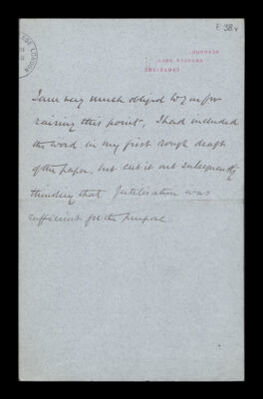 E 38v
I am very much obliged to you for
raising this point, I had included
the word in my first rough draft
of the paper, but cut it out subsequently
thinking that fertilisation was
sufficient for the purpose